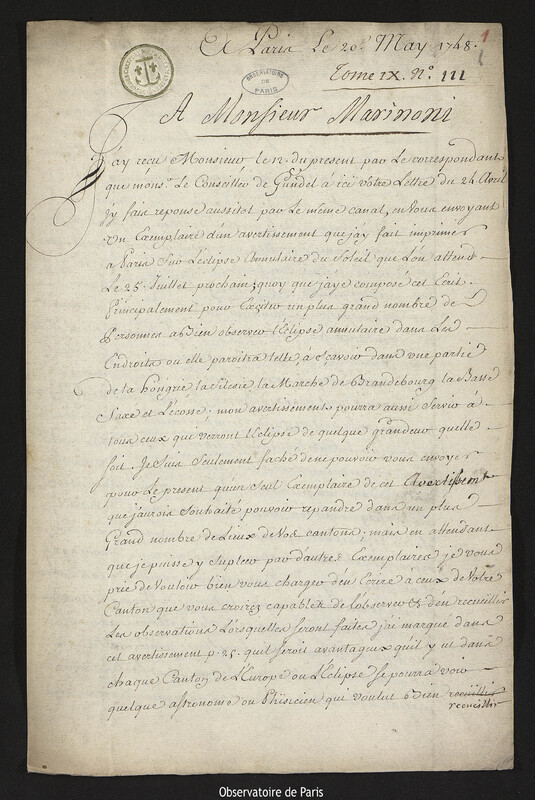 A Paris Le 20.e May 1748.
1
OBSERVATOIRE
DE
PARIS
Tome IX. N.o 111
A Monsieur Marinoni
J'ay reçu Monsieur le 12. du present par Le correspondant
que mons.r Le Conseiller de Gundel à ici Votre Lettre du 24 Avril
j'y fais reponse aussitot par Le même canal, en Vous envoyant
Un Exemplaire d'un avertissement que jay fait imprimer
a Paris Sur L'éclipse Annulaire du Soleil que L'on attend
Le 25. Juillet prochain; quoy que jaye composé cet Ecrit
Principalement pour Exciter un plus grand nombre de
Personnes a Bien observer L'Eclipse annulaire dans Les
Endroits ou elle paroitra telle, à Scavoir dans une partie
de la hongrie la Silesie la Marche de Brandebourg la Basse
Saxe et L'écosse, mon avertissement pourra aussi Servir à
tous ceux qui verront L'éclipse de quelque grandeur quelle
soit. Je Suis Seulement faché de ne pouvoir vous envoyer
pour Le present qu'un Seul Exemplaire de cet Avertissemt
que jaurois Souhaité pouvoir repandre dans un plus
Grand nombre de Lieux de Vos cantons; mais en attendant
que je puisse y Supleer par d'autres Exemplaires je vous
prie de Vouloir bien vous charger d'en Ecrire à ceux de Votre
Canton que vous croirez capables de lobserver & d'en recueillir
Les observations Lorsquelles seront faites jai marqué dans
cet avertissement p. 25. quil seroit avantageux quil y ut dans
chaque Canton de L'Europe ou L'Eclipse Se pourra voir
quelque astronome ou Phisicien qui voulut Bien recueillir
recueillir
Observatoire de Paris